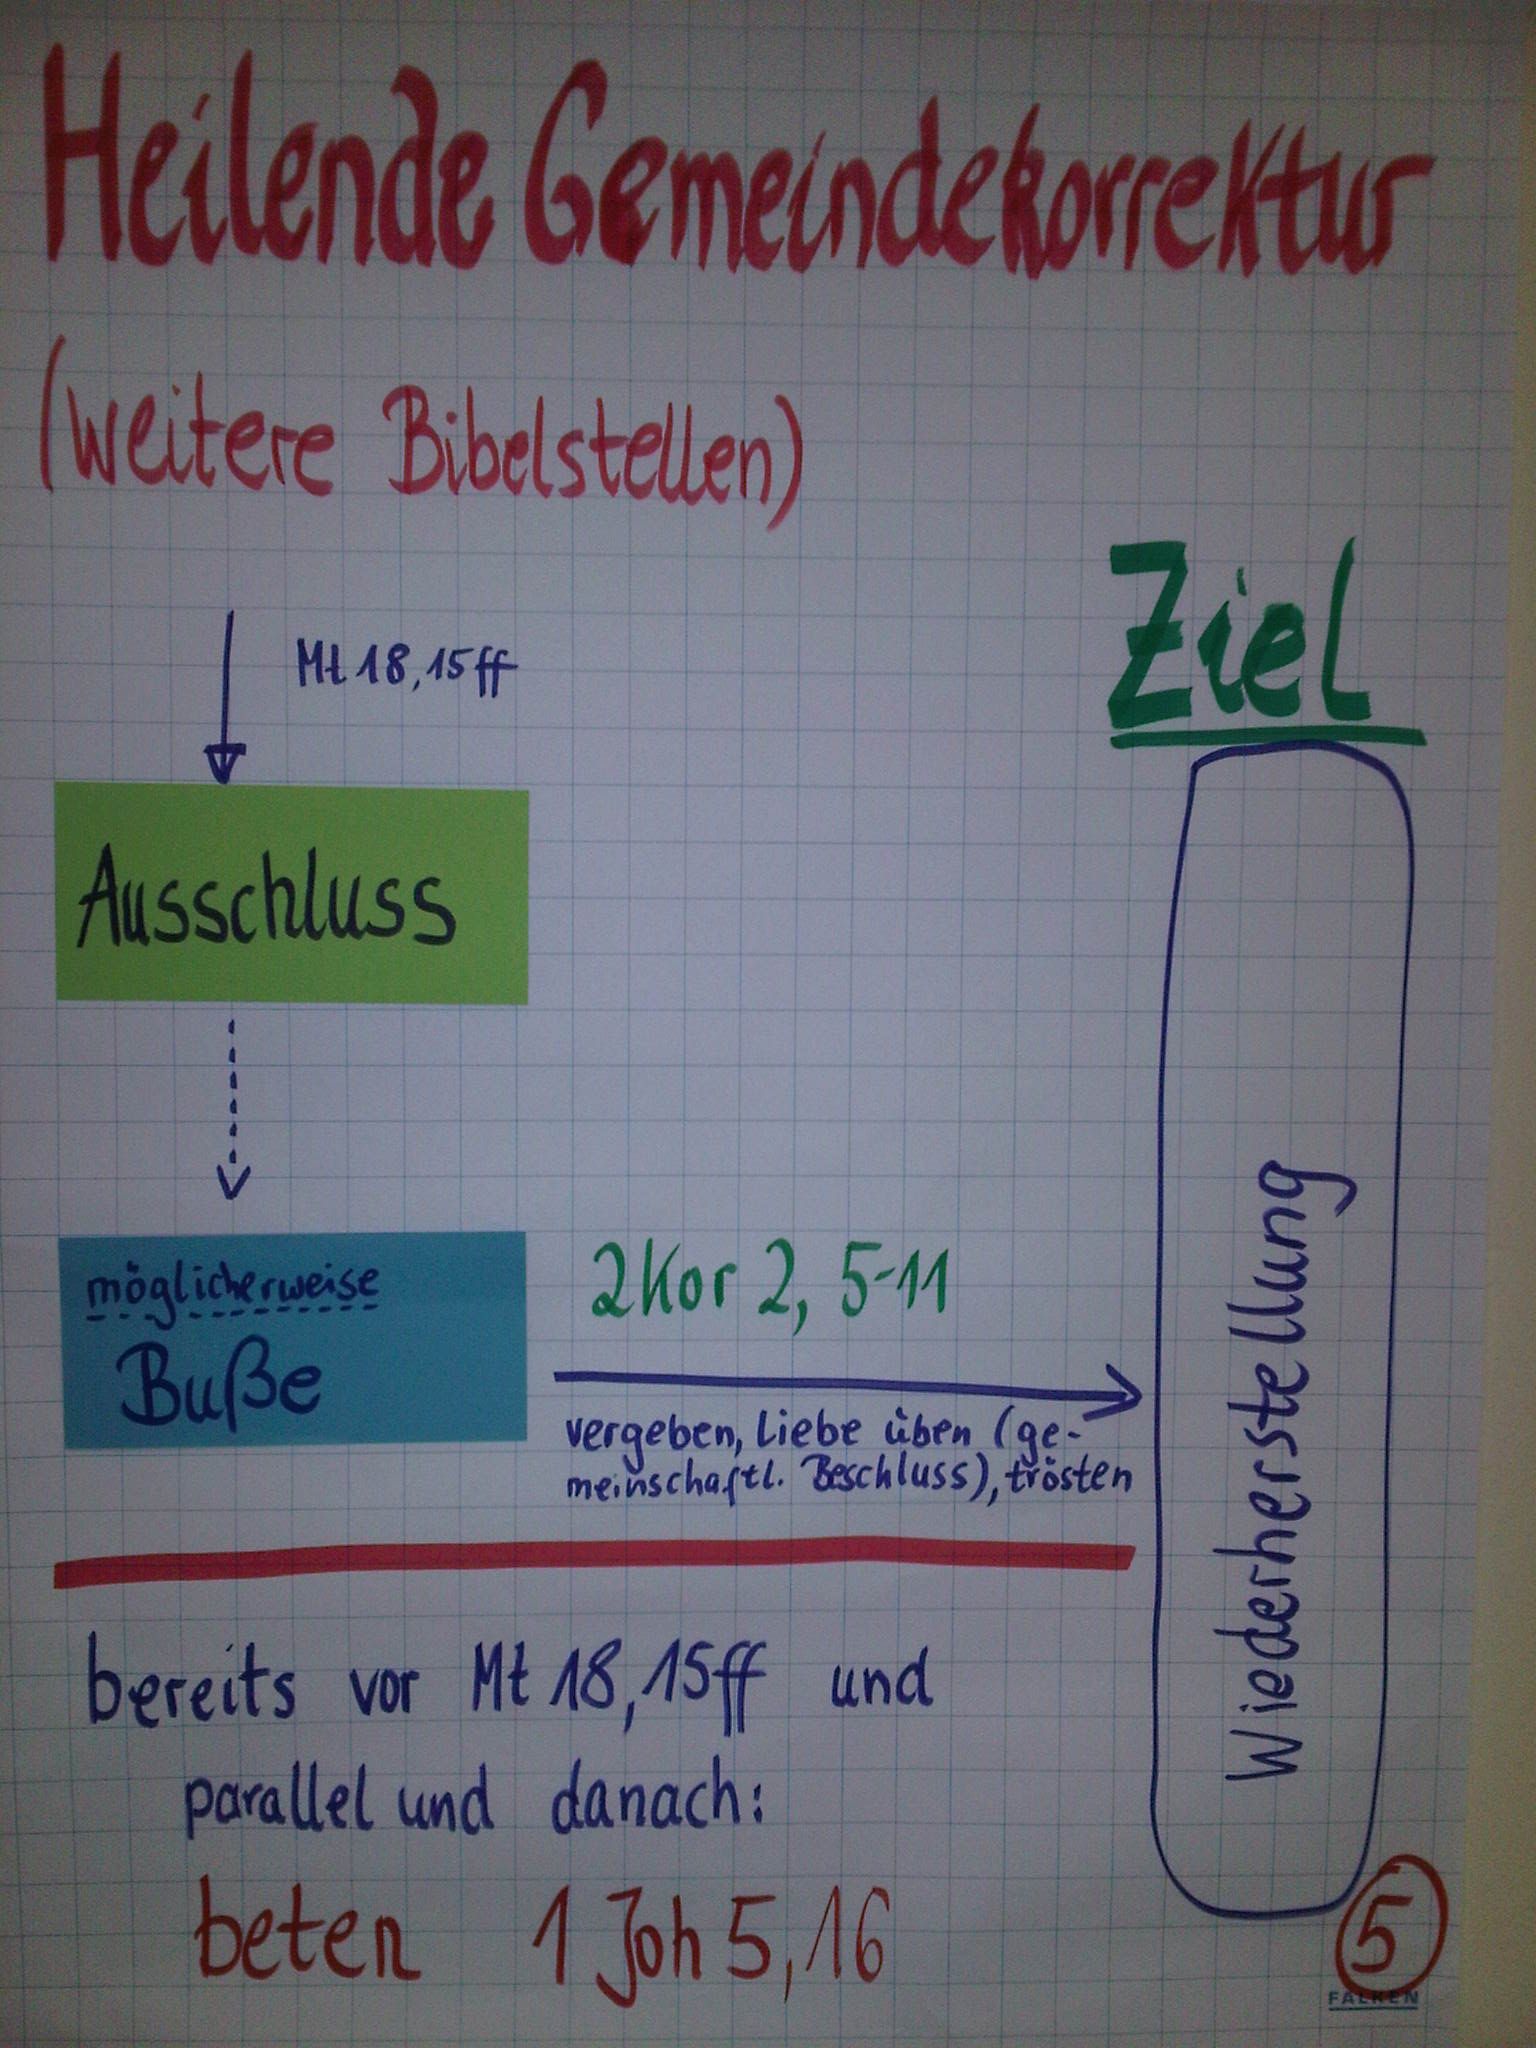 Heilende Gemeindekorrektur
(weitere Bibelstellen)
Mt 18,15ff
Ziel
Ausschluss
möglicherweise
Buße
2Kor 2, 5-11
vergeben, Liebe üben (ge-
meinschaftl. Beschluss), trösten
Wiederherstellung
bereits vor Mt 18,15ff und
parallel und danach:
beten 1 Joh 5,16
5
FALKEN